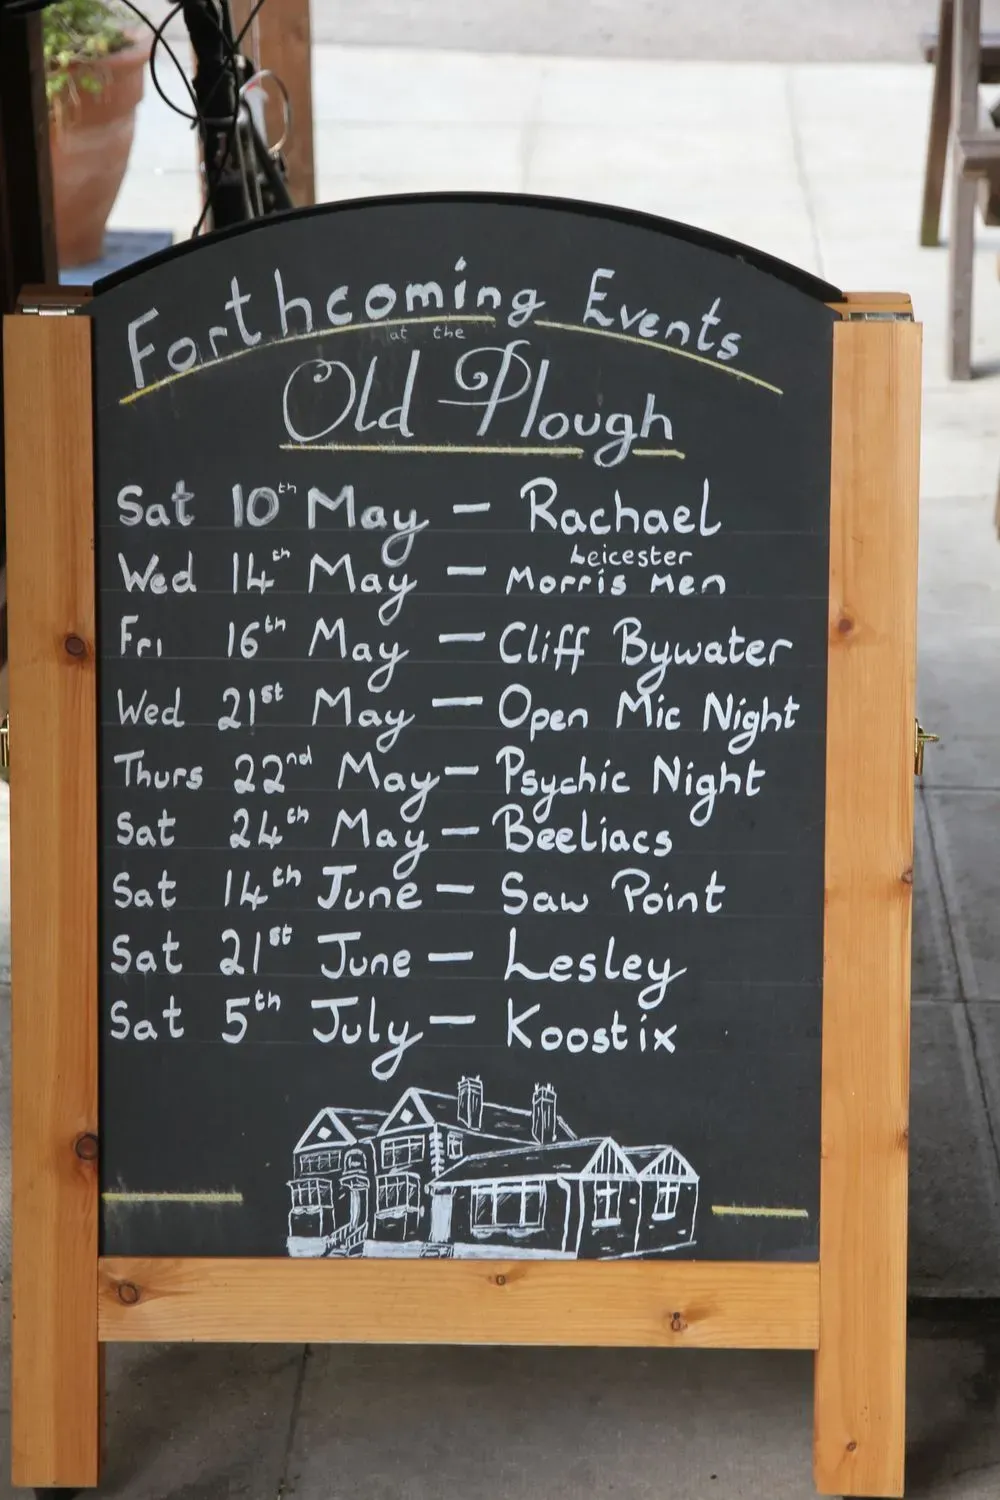 Forthcoming Events
at the
Old Plough
Sat 10th May — Rachael
Wed 14th May — Leicester Morris Men
Fri 16th May — Cliff Bywater
Wed 21st May — Open Mic Night
Thurs 22nd May — Psychic Night
Sat 24th May — Beeliacs
Sat 14th June — Saw Point
Sat 21st June — Lesley
Sat 5th July — Koostix